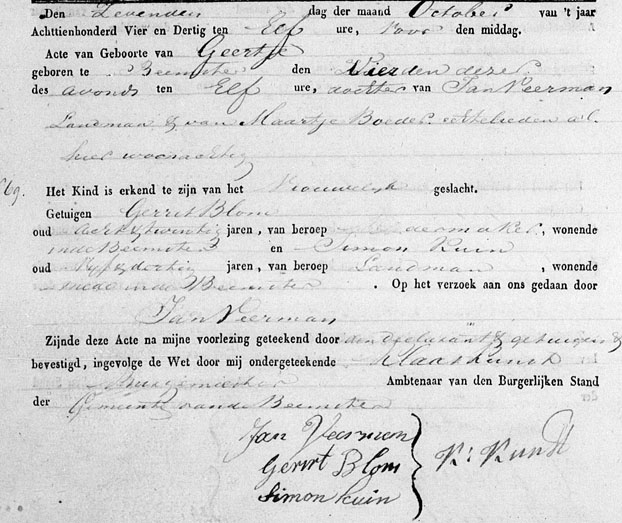 Den Zevenden dag der maand October van 't jaar
Achttienhonderd Vier en Dertig ten Elf ure, Voor den middag.
Acte van Geboorte van Geertje
geboren te Beemster den Vierden dezer
des avonds ten Elf ure, dochter van Jan Veerman
Landman & van Maartje Boeder echtelieden al
hier woonachtig
69.
Het Kind is erkend te zijn van het Vrouwelijk geslacht.
Getuigen Gerrit Blom
oud jaren, van beroep , wonende
inde Beemster en Simon Kuin
oud Vyf & dertig jaren, van beroep Landman , wonende
mede inde Beemster . Op het verzoek aan ons gedaan door
Jan Veerman
Zijnde deze Acte na mijne voorlezing geteekend door den Declarant & getuigen &
bevestigd, ingevolge de Wet door mij ondergeteekende Klaas
Burgemeester Ambtenaar van den Burgerlijken Stand
der Gemeente van de Beemster
Jan Veerman
Gerrit Blom
Simon Kuin